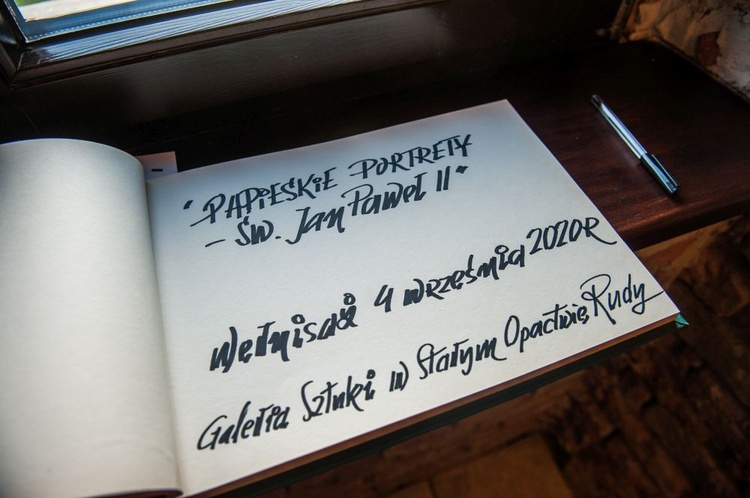 "PAPIESKIE PORTRETY
– ŚW. Jan Paweł II"
Wernisaż 4 września 2020R
Galeria Sztuki w Starym Opactwie, Rudy